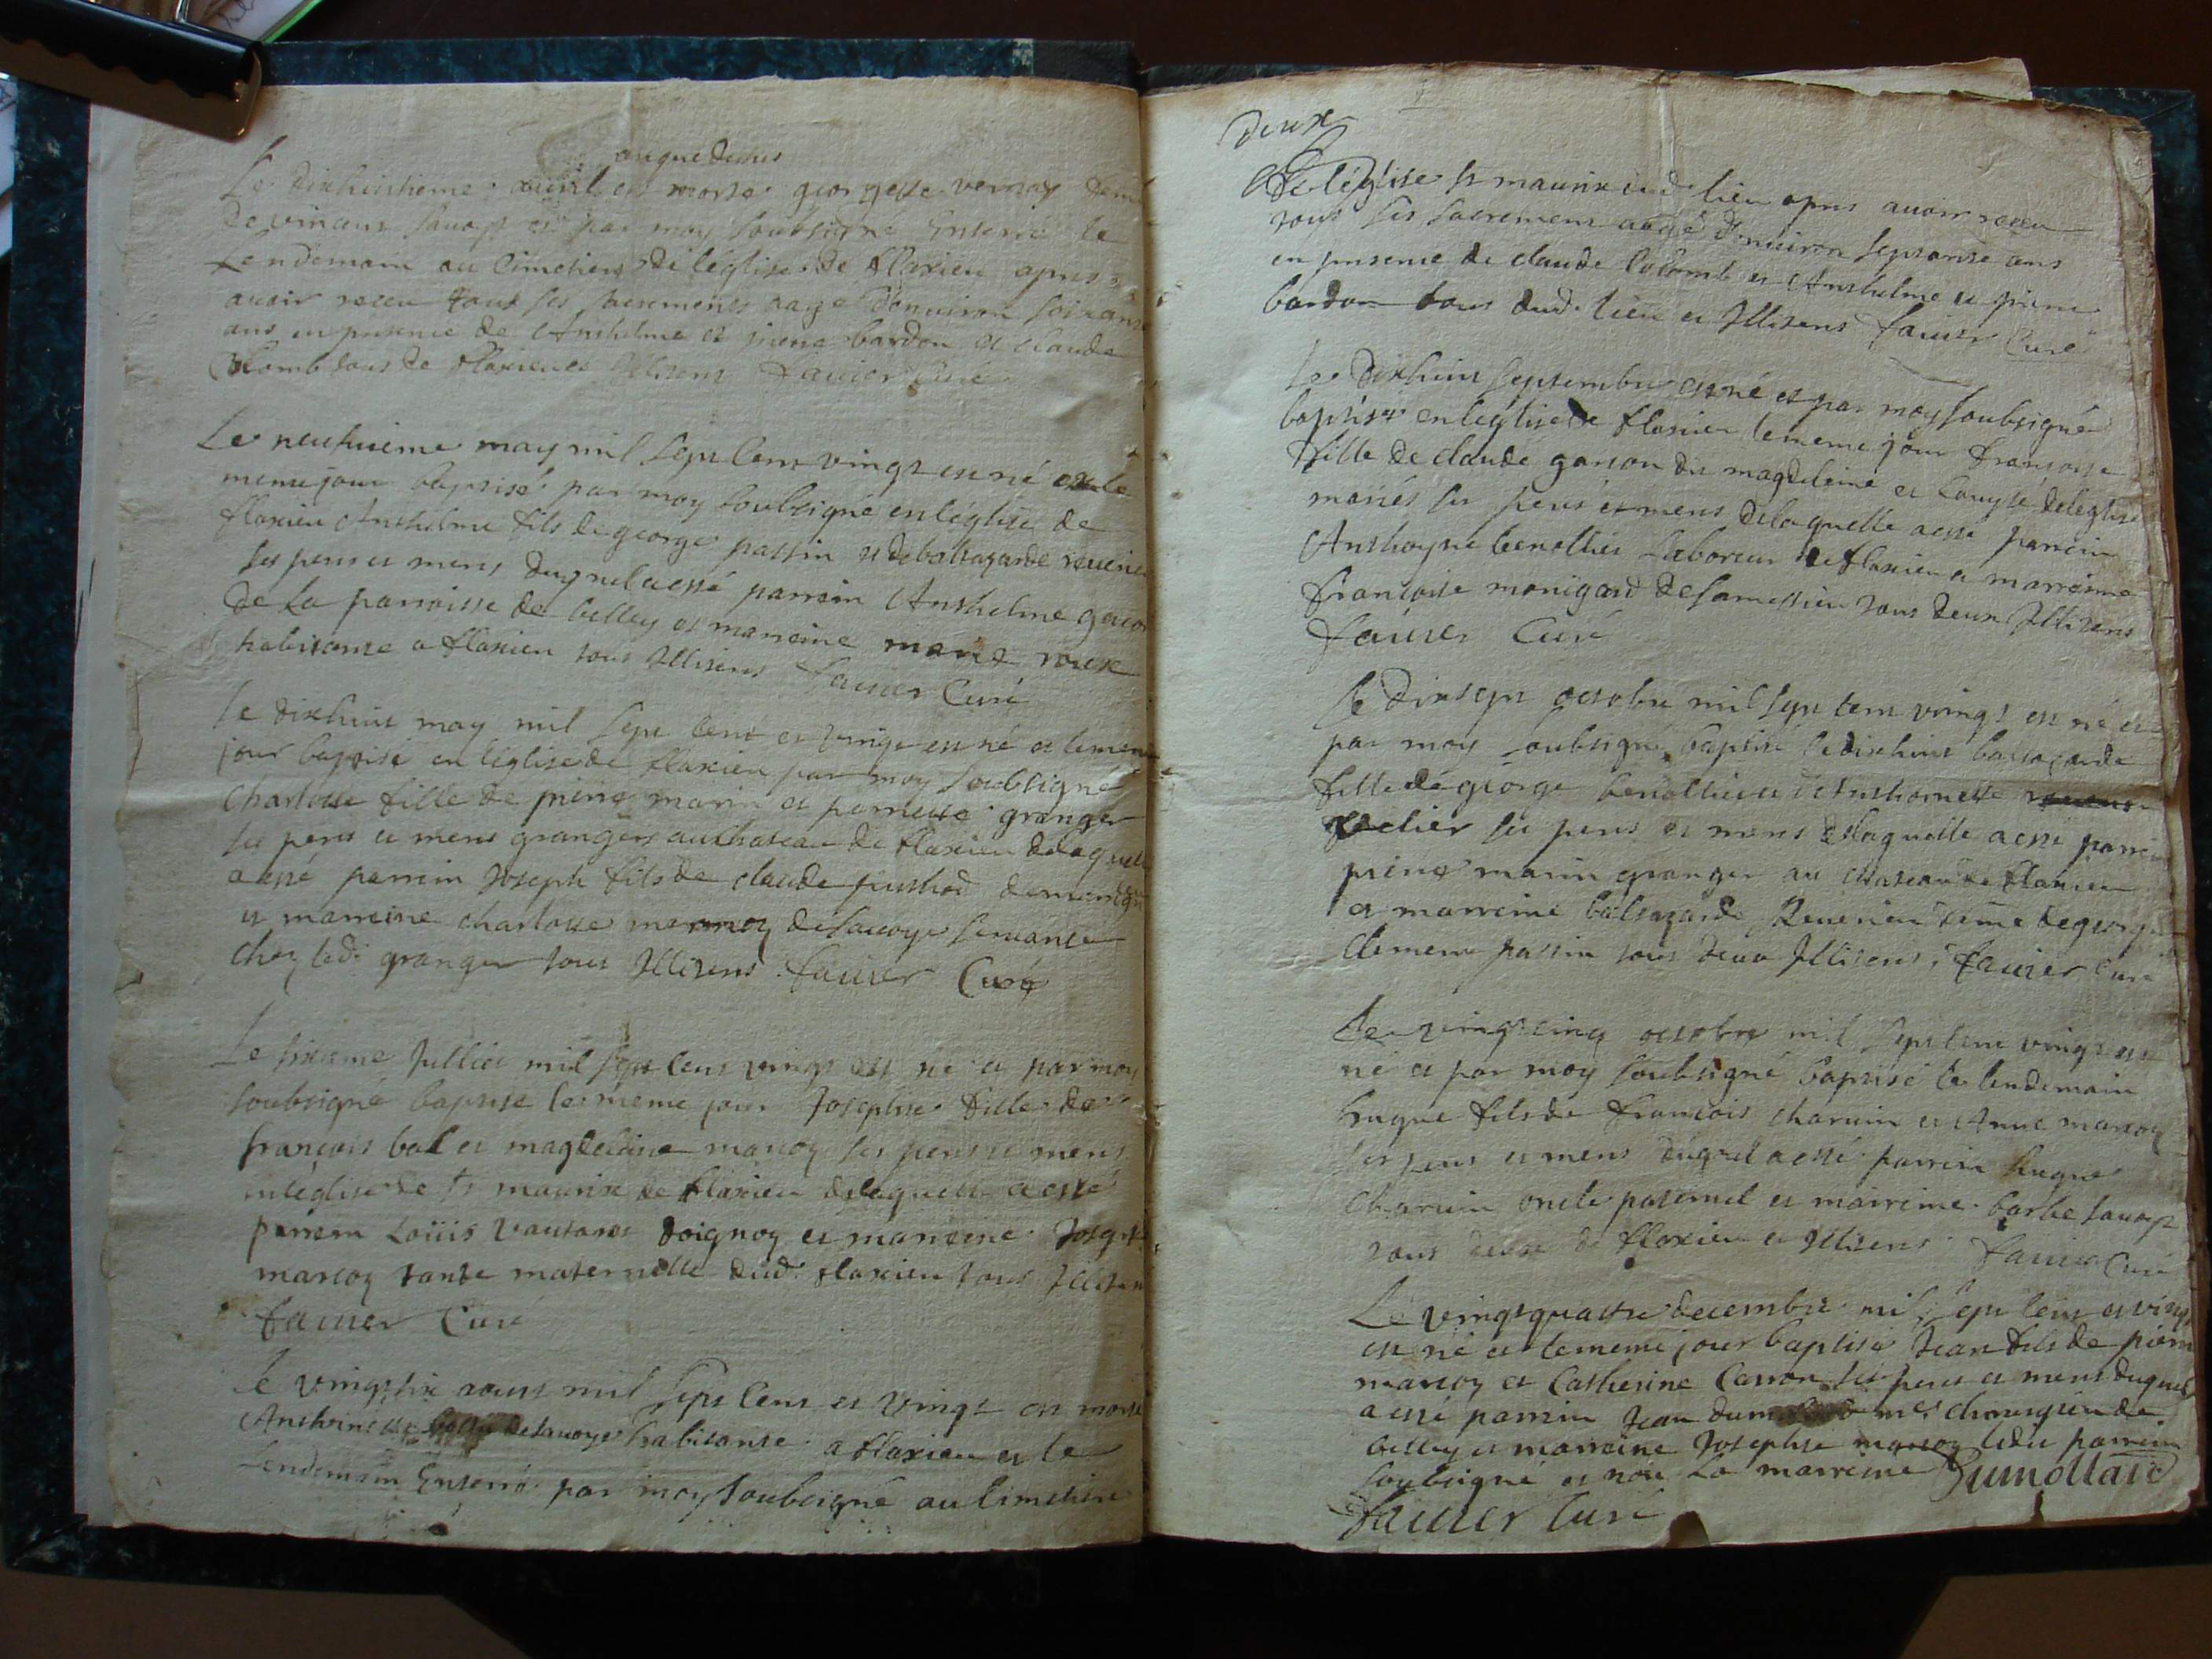 an que dessus
Le dixhuistieme avril est morte georgette vernay
de vincens savoye et par moy soubsigné Enterré le
Lendemain au Cimetiere de l'eglise de flaxieu apres
avoir receu tous ses sacrements aagé d'environ soixante
ans en presence de Anthelme et pierre bardon et Claude
Colomb tous de flaxieu et Illiterez favier Curé
Le neufvieme may mil sept Cent vingt est né et le
meme jour baptisé par moy soubsigné en l'eglise de
flaxieu Anthelme fils de george passin et de baltazarde
ses peres et meres duquel a esté parrein Anthelme
de La parroisse de belley et marreine roux
habitante a flaxieu tous Illiterez favier Curé
le dixhuit may mil sept Cent et vingt est né et le meme
jour baptisé en l'eglise de flaxieu par moy soubsigné
Charlotte fille de pierre marin et pernette granger
ses peres et meres grangers au chateau de flaxieu delaquelle
a esté parrein Joseph fils de claude
et marreine charlotte de savoye servante
chez led. granger tous Illiterez favier Curé
Le sixieme Jullet mil sept Cent vingt est né et par moy
soubsigné baptisé le meme jour Josephte fille de
françois bal et magdeleine marcoz ses peres et meres
en l'eglise de st maurix de flaxieu delaquelle a esté
parrein Loüis et marreine Josephte
marcoz tante maternelle dud. flaxieu tous Illiterez
favier Curé
le vingtsix aoust mil sept Cent et vingt est morte
de savoye habitante a flaxieu et le
lendemain Enterré par moy soubsigné au Cimetiere
Deux
de l'eglise st maurix du d. lieu apres avoir receu
tous ses sacremens aagé d'environ septante ans
en presence de claude Colomb et Anthelme et pierre
bardon tous dud. lieu et Illiterez favier Curé
Le Dixhuit septembre est né et par moy soubsigné
baptisé en l'eglise de flaxieu le meme jour françoise
fille de claude garson dit magdeleine et Louyse deleglise
mariés ses peres et meres delaquelle a esté parrein
Anthoyne benollier laboreur de flaxieu et marreine
françoise monigard tous deux Illiterez
favier Curé
Le dixsept octobre mil sept cent vingt est né et
par moy soubsigné baptisé le dixhuit baltazarde
fille de george benollier et Anthoinette
ses peres et meres delaquelle a esté parrein
pierre marin granger au chateau de flaxieu
et marreine baltazarde feme de george
clement passin tous deux Illiterez favier Curé
Le vingtcinq octobre mil sept Cent vingt est
né et par moy soubsigné baptisé le lendemain
hugue fils de françois charvin et Anne marcoz
ses peres et meres duquel a esté parrein hugue
charvin oncle paternel et marreine barbe savoye
tous deux de flaxieu et Illiterez favier Curé
Le vingtquattre decembre mil sept Cent et vingt
est né et le meme jour baptisé Jean fils de pierre
marcoz et Catherine Carron ses peres et meres duquel
a esté parrein Jean me chirurgien de
belley et marreine Josephte marcoz ledit parrein
soubsigné et non La marreine Dumollard
favier Curé